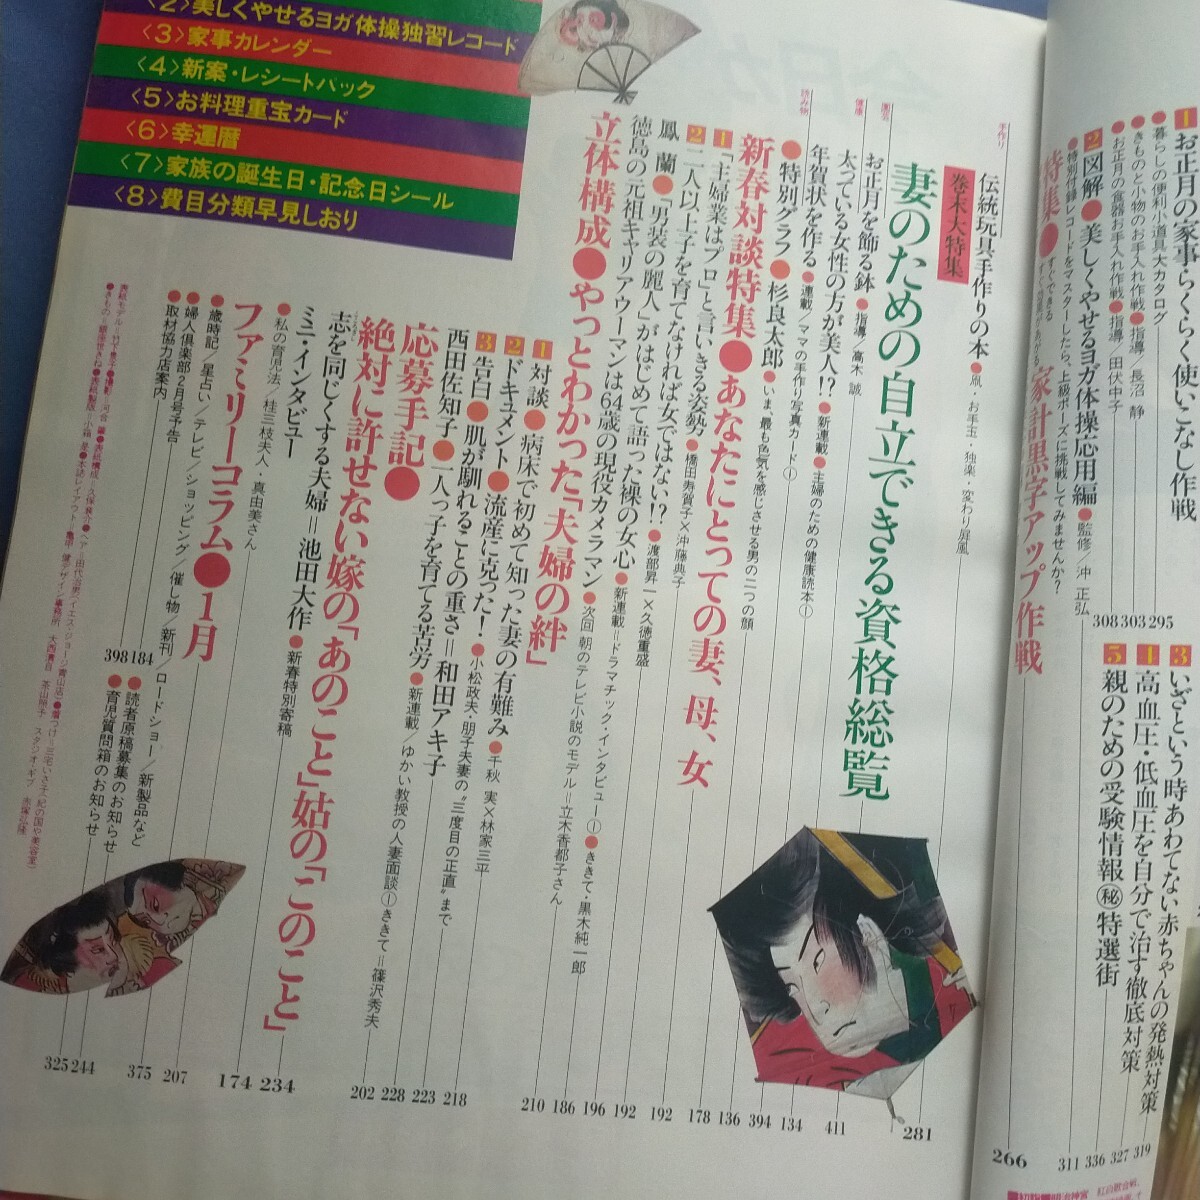 1 お正月の家事らくらく使いこなし作戦
●暮らしの便利小道具大カタログ
●きものと小物のお手入れ作戦●指導/長沼 静
●お正月の食器お手入れ作戦●指導/田伏中子
295
303
308
2 図解●美しくやせるヨガ体操応用編●監修/沖 正弘
●特別付録レコードをマスターしたら、上級ポーズに挑戦してみませんか?
3 いざという時あわてない赤ちゃんの発熱対策
319
4 高血圧・低血圧を自分で治す徹底対策
327
5 親のための受験情報㊙特選街
336
311
特集●家計黒字アップ作戦
266
手作り
伝統玩具手作りの本●凧・お手玉・独楽・変わり屏風
巻末大特集
妻のための自立できる資格総覧
281
園芸
お正月を飾る鉢●指導/高木 誠
411
健康
太っている女性の方が美人!?●新連載●主婦のための健康読本①
134
年賀状を作る●連載/ママの手作り写真カード①
394
読み物
●特別グラフ●杉良太郎●いま、最も色気を感じさせる男の二つの顔
136
新春対談特集●あなたにとっての妻、母、女
1 「主婦業はプロ」と言いきる姿勢●橋田寿賀子×沖藤典子
178
2 二人以上子を育てなければ女ではない!?●渡部昇一×久徳重盛
192
鳳 蘭●「男装の麗人」がはじめて語った裸の女心●新連載=ドラマチック・インタビュー①●ききて・黒木純一郎
192
徳島の元祖キャリアウーマンは64歳の現役カメラマン●次回 朝のテレビ小説のモデル—立木香都子さん
196
立体構成●やっとわかった「夫婦の絆」
186
1 対談●病床で初めて知った妻の有難み●千秋 実×林家三平
210
2 ドキュメント●流産に克った!●小松政夫・朋子夫妻の"三度目の正直"まで
218
3 告白●肌が馴れることの重さ=和田アキ子
223
西田佐知子●一人っ子を育てる苦労●新連載/ゆかい教授の人妻面談①ききて=篠沢秀夫
228
202
応募手記●
絶対に許せない嫁の「あのこと」姑の「このこと」
234
志を同じくする夫婦=池田大作●新春特別寄稿
174
ミニ・インタビュー
●私の育児法/桂三枝夫人・真由美さん
207
ファミリーコラム●1月
375
●歳時記/星占い/テレビ/ショッピング/催し物/新刊/ロードショー/新製品など
●婦人倶楽部2月号予告
184
●取材協力店案内
398
●読者原稿募集のお知らせ
244
●育児質問箱のお知らせ
325
〈2〉美しくやせるヨガ体操独習レコード
〈3〉家事カレンダー
〈4〉新案・レシートパック
〈5〉お料理重宝カード
〈6〉幸運暦
〈7〉家族の誕生日・記念日シール
〈8〉費目分類早見しおり